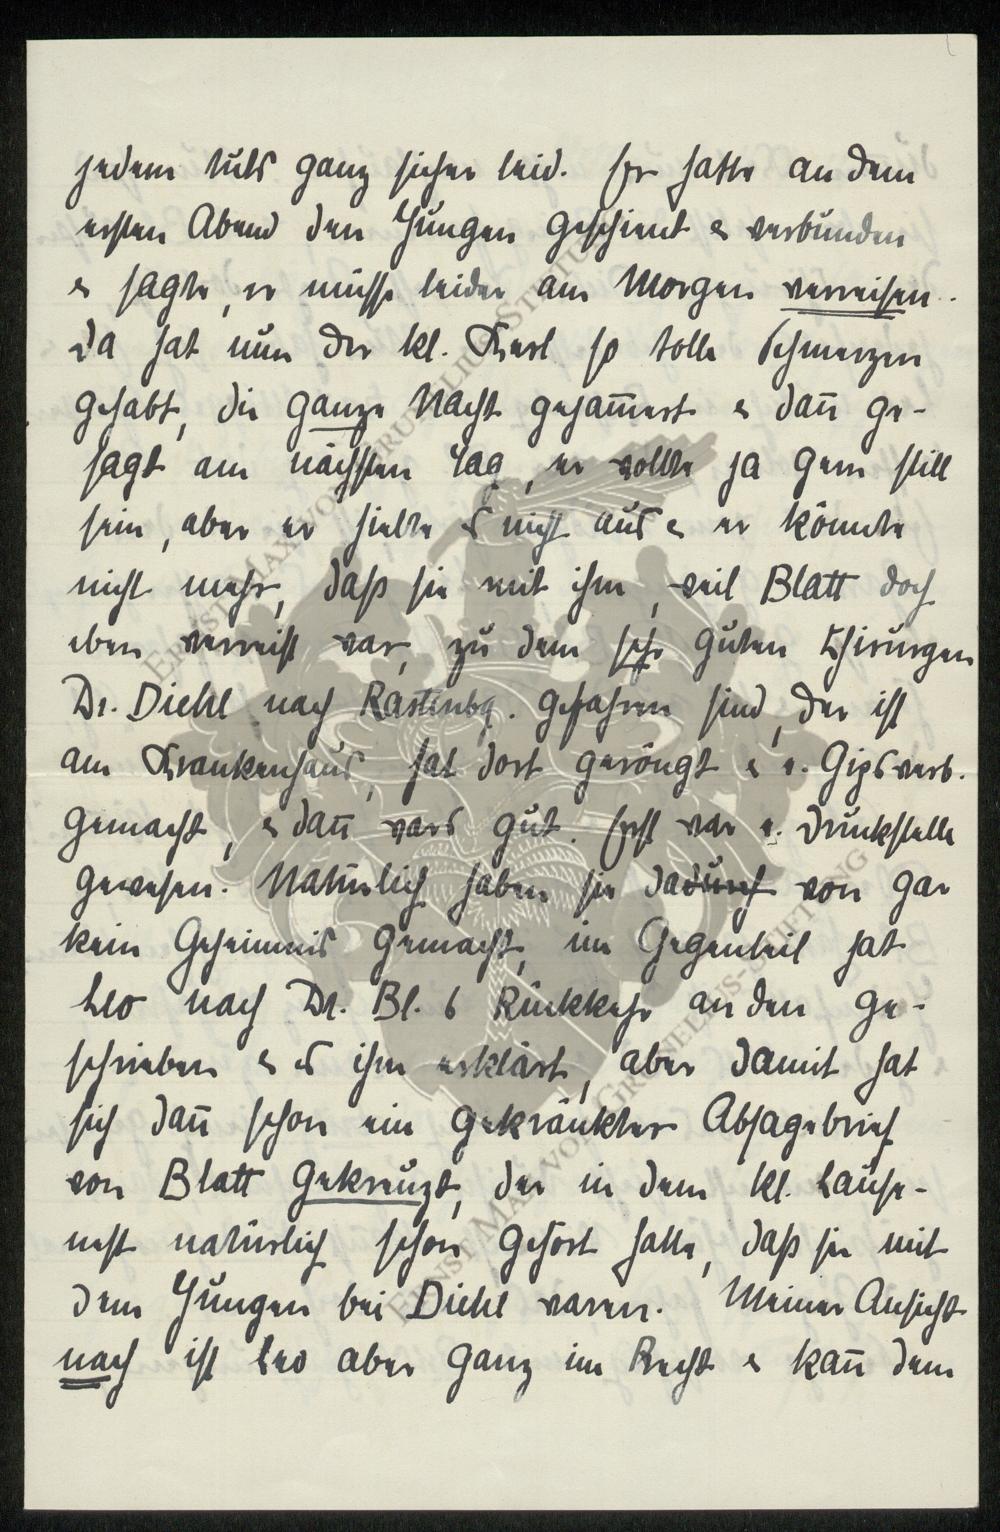 jedem tuts ganz sicher leid. Er hatte an dem
ersten Abend den Jungen geschient & verbunden
& sagte, er müsse leider am Morgen verreisen.
Da hat nun der kl. Kerl so tolle Schmerzen
gehabt, die ganze Nacht gejam̄ert & dan̄ ge-
sagt am nächsten Tag, er wollte ja gern still
sein, aber er hielte es nicht aus & er könnte
nicht mehr, daß sie mit ihm, weil Blatt doch
eben verreist war, zu dem sehr guten Chirurgen
Dr. Diehl nach Rastenbg. gefahren sind, der ist
am Krankenhaus, hat dort geröngt & e. Gipsverb.
gemacht, & dan̄ wars gut. Erst war e. Druckstelle
gewesen. Natürlich haben sie dadurch von gar
kein Geheimnis gemacht, im Gegenteil hat
Leo nach Dr. Bl.s Rückkehr an den ge-
schrieben & es ihm erklärt, aber damit hat
sich dan̄ schon ein gekränkter Absagebrief
von Blatt gekreuzt, der in dem kl. Lause-
nest natürlich schon gehört hatte, daß sie mit
dem Jungen bei Diehl waren. Meiner Ansicht
nach ist Leo aber ganz im Recht & kan̄ dem
ERNST MAX VON GRUNELIUS-STIFTUNG
ERNST MAX VON GRUNELIUS-STIFTUNG